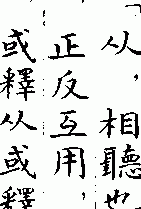 「从，相聽也
正反互用，
或釋从或釋